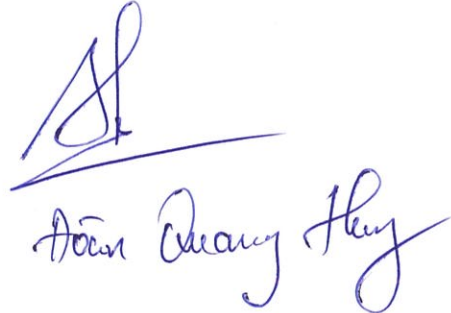 Đoàn Quang Huy